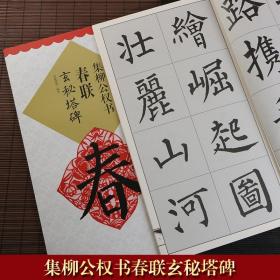 集柳公权书
春联
玄秘塔碑
春
路携
繪崛起圖
壮麗山河
集柳公权书春联玄秘塔碑